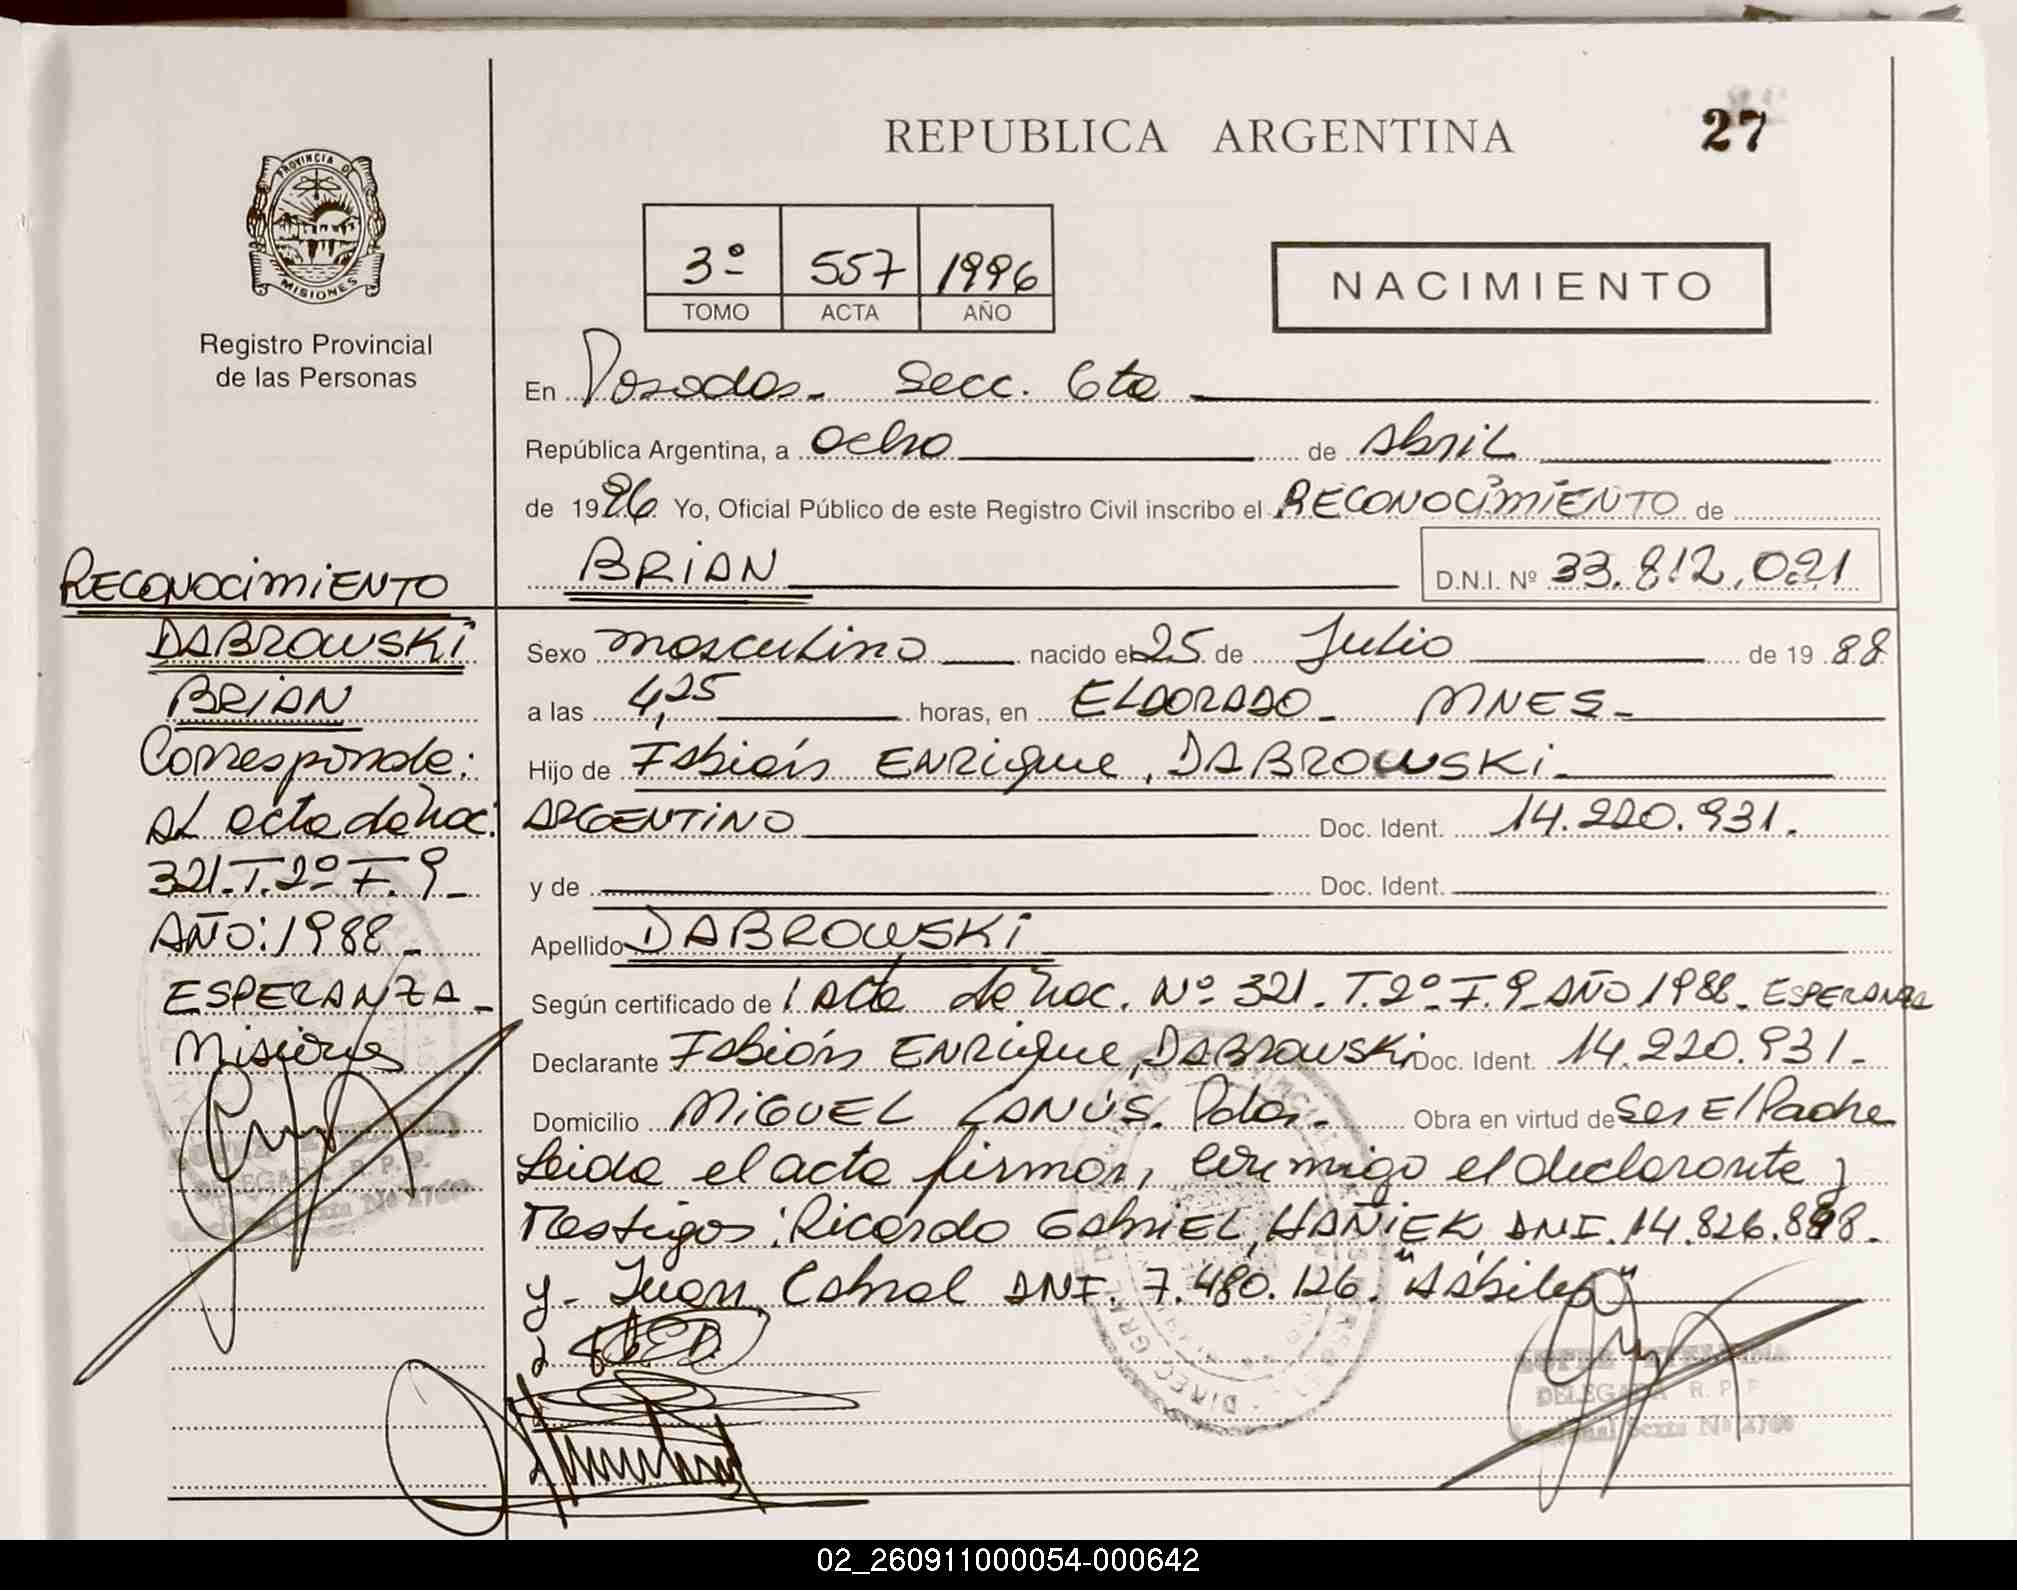 REPUBLICA ARGENTINA
27
PROVINCIA DE
MISIONES
Registro Provincial
de las Personas
3º 557 1996
TOMO ACTA AÑO
NACIMIENTO
En Posadas - Secc. 6ta
República Argentina, a ocho de Abril
de 1996 Yo, Oficial Público de este Registro Civil inscribo el RECONOCIMIENTO de
BRIAN D.N.I. Nº 33.812.021
RECONOCIMIENTO
DABROWSKI
BRIAN
Corresponde:
AL acta de Nac:
321-T.2º-F.9-
AÑO:1988-
ESPERANZA-
Misiones
Sexo masculino nacido el 25 de Julio de 1988
a las 4,25 horas, en ELDORADO - MNES-
Hijo de Fabián ENRique, DABROWSKi
ARGENTINO Doc. Ident. 14.220.931.
y de Doc. Ident.
Apellido DABROWSKi
Según certificado de 1 Acta de Nac. Nº 321-T.2º-F.9-AÑO 1988-ESPERANZA
Declarante Fabián ENRique, DABROWSKi Doc. Ident. 14.220.931-
Domicilio MIGUEL LANÚS. Pdas- Obra en virtud de Ser El Padre
Leida el acta firman, conmigo el declarante y
Testigos: Ricardo GabriEL, HAÑIEK, DNI. 14.826.898-
y- Juan Cabral DNI. 7.480.126. "Hábiles"
DELEGADA R. P. P.
Seccional Sexta Nº 2760
DELEGADA R. P. P.
Seccional Sexta Nº 2760
02_260911000054-000642